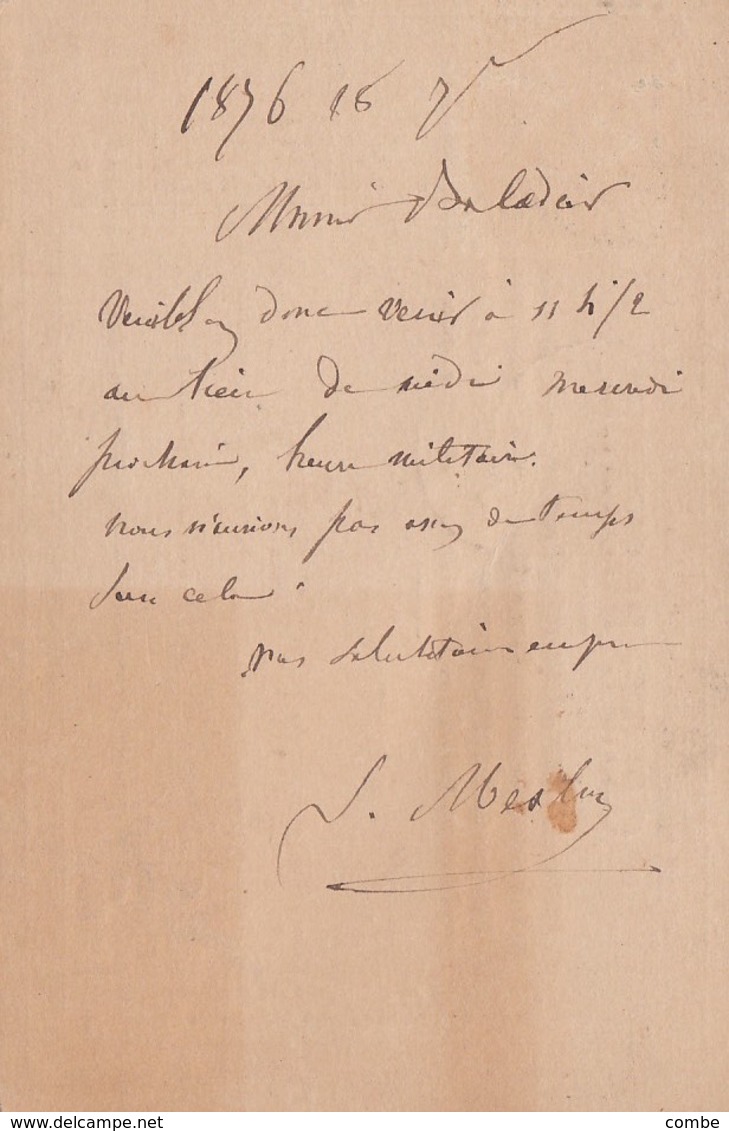 1876 18 7r
Monsieur Baladier
Veuillez donc venir à 11 h 1/2
au lieu de midi mercredi
prochain, heure militaire.
nous n'aurions pas assez de temps
sans cela.
mes salutations empressées
https://www.delcampe.net
combe